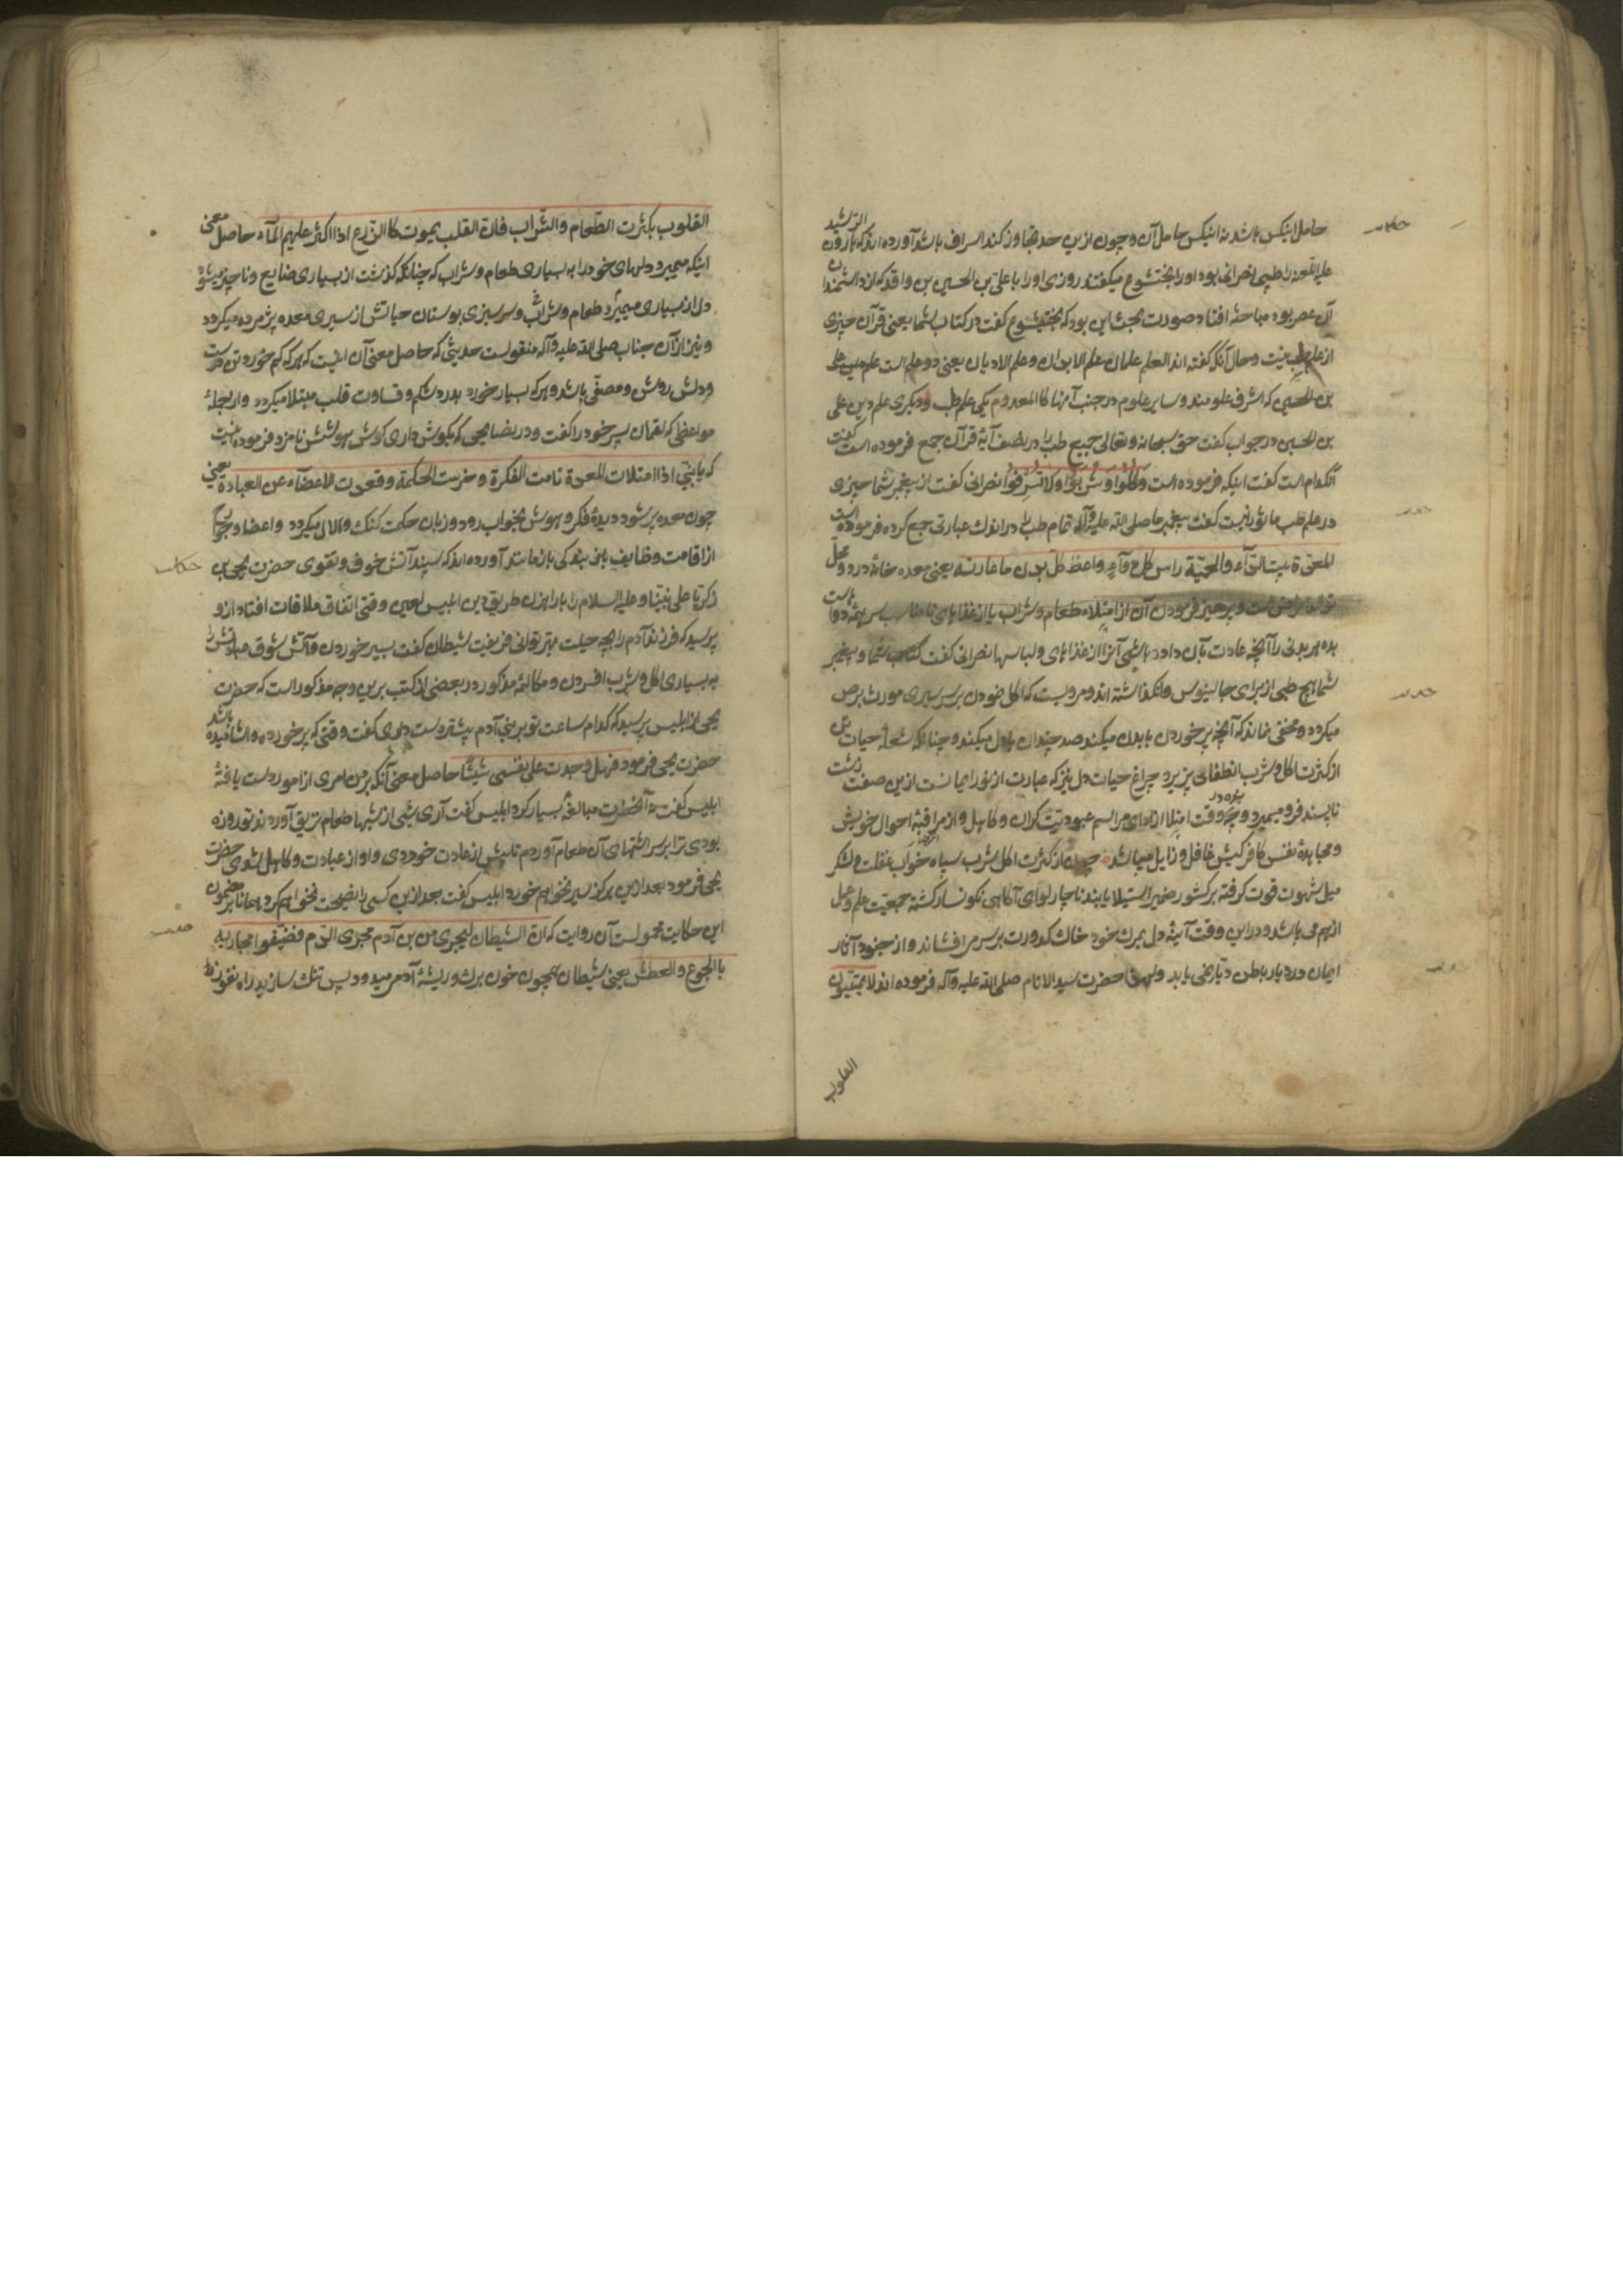 حکایت
حامل اینکس باشد نه اینکس حامل آن و چون ازین حد تجاوز کند اسراف باشد آورده‌اند که هارون الرشید
علیه اللعنه را طبیبی نصرانی بود او را بختشوع میکفتند روزی او را با علی بن الحسین بن واقد که از دانشمندان
آن عصر بود مباحثه افتاد صورت بحث این بود که بختیشوع کفت در کتاب شما یعنی قرآن چیزی
از علم طب نیست و حال آنکه گفته اند العلم علمان علم الابدان و علم الادیان یعنی دو علم است علم
بن الحسین که اشرف علومند و سایر علوم در جنب آنها کالمعدوم یکی علم طب و دیکری علم دین علی
بن الحسین در جواب کفت حق سبحانه و تعالی جمیع طب را در نصف آیهٔ قرآن جمع فرموده است کفت
آنکدام است کفت اینکه فرموده است وکلوا و شربوا ولا تسرفوا نصرانی کفت از پیغمبر شما چیزی
در علم طب ماثور نیست کفت پیغمبر ما صلی الله علیه وآله تمام طب را در اندک عبارتی جمع کرده فرموده است
المعدة بیت الداء والحمیة راس کل دوآء واعط کل بدن ما عادته یعنی معده خانهٔ درد و محل
تولد امراض است و پرهیز فرمودن آن از امتلاء طعام و شراب یا از غذاهای نامناسب سر همه دواهاست
بده هر بدنی را آنچه عادت بآن داده باشی آنرا از غذاهای و لباسها نصرانی کفت کتاب شما و پیغمبر
شما هیچ طبی از برای جالینوس وانکذاشته اند و مرویست که اکل نمودن بر سر سیری مورث برص
میکردد و مخفی نماند که آنچه پر خوردن با بدن میکند صد چندان با دل میکند و چنانکه شعلهٔ حیات تن
از کثرت اکل و شرب انطفائی پذیرد چراغ حیات دل نیز که عبارت از نور ایمانست ازین صفت زشت
ناپسند فرو میمیرد و چه در وقت امتلا از ادای مراسم عبودیت کران و کاهل و از مراقبهٔ احوال خویش
و مجاهدهٔ نفس کافر کیش غافل و زایل میباشد چون از کثرت اکل شرب سپاه خواب غفلت و لشکر
میل شهوت قوت کرفته بر کشور ضمیر استیلا یابند ناچار لوای آکاهی نکونسار کشته جمعیت علم و عمل
از هم می پاشد و در این وقت آیینهٔ دل بمرک خود خاک کدورت بر سر می افشاند و از جنود آثار
ایمان در دیار باطن دیاری نمی یابد ولهذا حضرت سید الانام صلی الله علیه وآله فرموده اند لا تمیتوا
القلوب
القلوب بکثرت الطعام والشراب فان القلب یموت کالزرع اذا اکثر علیهم المآء حاصل معنی
اینکه میمیرد دلهای خود را به بسیاری طعام و شراب که چنانکه کذشت از بسیاری ضایع و ناچیز میشود
دل از بسیاری میمیرد طعام و شراب و سرسبزی بوستان حیاتش از سیری معده پژمرده میکردد
و نیز از آن جناب صلی الله علیه وآله منقولست حدیثی که حاصل معنی آن اینست که هر که کم خورد تن درست
و دلش روشن و مصفی باشد و هر که بسیار خورد بدرد شکم و قساوت قلب مبتلا میکردد و از جملهٔ
مواعظی که لقمان پسر خود را کفت و در نصایحی که بکوش داری کوش هوشش نامزد فرموده اینست
که یا بنی اذا امتلات المعدة نامت الفکرة و خرست الحکمة و قعدت الاعضاء عن العبادة یعنی
چون معده پر شود دیدهٔ فکر و هوش بخواب رود و زبان حکمت کنک و لال میکردد و اعضا و جوارح
از اقامت وظایف بندکی باز مانند آورده‌اند که سپند آتش خوف و تقوی حضرت یحیی بن
حکایت
زکریا علی نبینا و علیه السلام را با راهزن طریق دین ابلیس لعین وقتی اتفاق ملاقات افتاد ازو
پرسید که فرزند آدم را بچه حیلت بهتر توانی فریفت شیطان کفت بسیر خوردن و آتش شوق عبادتش را
به بسیاری اکل و شرب افسردن و مکالمهٔ مذکور در بعضی از کتب برین وجه مذکور است که حضرت
یحیی از ابلیس پرسید که کدام ساعت تو بر بنی آدم بیشتر دست داری کفت وقتی که پر خورده و اشامیده باشد
حضرت یحیی فرمود فهل وجدت علی نفسی شیئا حاصل معنی آنکه بر من امری از امور دست یافتهٔ
ابلیس کفت نه آنحضرت مبالغهٔ بسیار کرد ابلیس کفت آری شبی از شبها طعام نزیق آوردند تو روزه
بودی ترا بر سر اشتهای آن طعام آوردم تا بیش از عادت خوردی و از عبادت کاهل شدی حضرت
یحیی فرمود بعد ازین هرکز سیر نخواهم خورد ابلیس کفت بعد ازین کسی را نصیحت نخواهم کرد همانا مضمون
این حکایت محمولست آن روایت که ان الشیطان لیجری من بن آدم مجری الدم فضیقوا مجاریه
بالجوع والعطش یعنی شیطان همچون خون برک و ریشهٔ آدمی میدود پس تنک سازید راه نفوذ